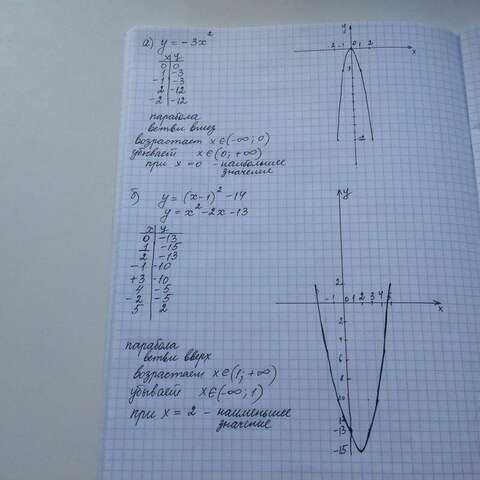 а) y = -3x²
x | y
0 | 0
1 | -3
-1 | -3
2 | -12
-2 | -12
парабола
ветви вниз
возрастает x∈(-∞; 0)
убывает x∈(0; +∞)
при x = 0 - наибольшее
значение
y
-2 -1 0 1 2
x
-12
б) y = (x-1)² - 14
y = x² - 2x - 13
x | y
0 | -13
1 | -15
2 | -13
-1 | -10
+3 | -10
4 | -5
-2 | -5
5 | 2
парабола
ветви вверх
возрастает x∈(1; +∞)
убывает x∈(-∞; 1)
при x = 2 - наименьшее
значение
y
2
-1 0 1 2 3 4 5
x
2
4
6
8
10
12
-13
-15